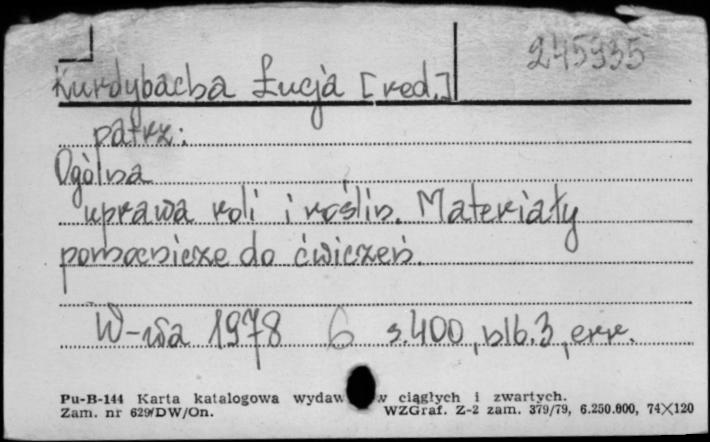 245935
Kurdybacha Łucja [red.]
patrz:
Ogólna
uprawa roli i roślin. Materiały
pomocnicze do ćwiczeń.
W-wa 1978 6 s.400, nlb.3, err.
Pu-B-144 Karta katalogowa wydaw w ciągłych i zwartych.
Zam. nr 629/DW/On. WZGraf. Z-2 zam. 379/79, 6.250.000, 74×120